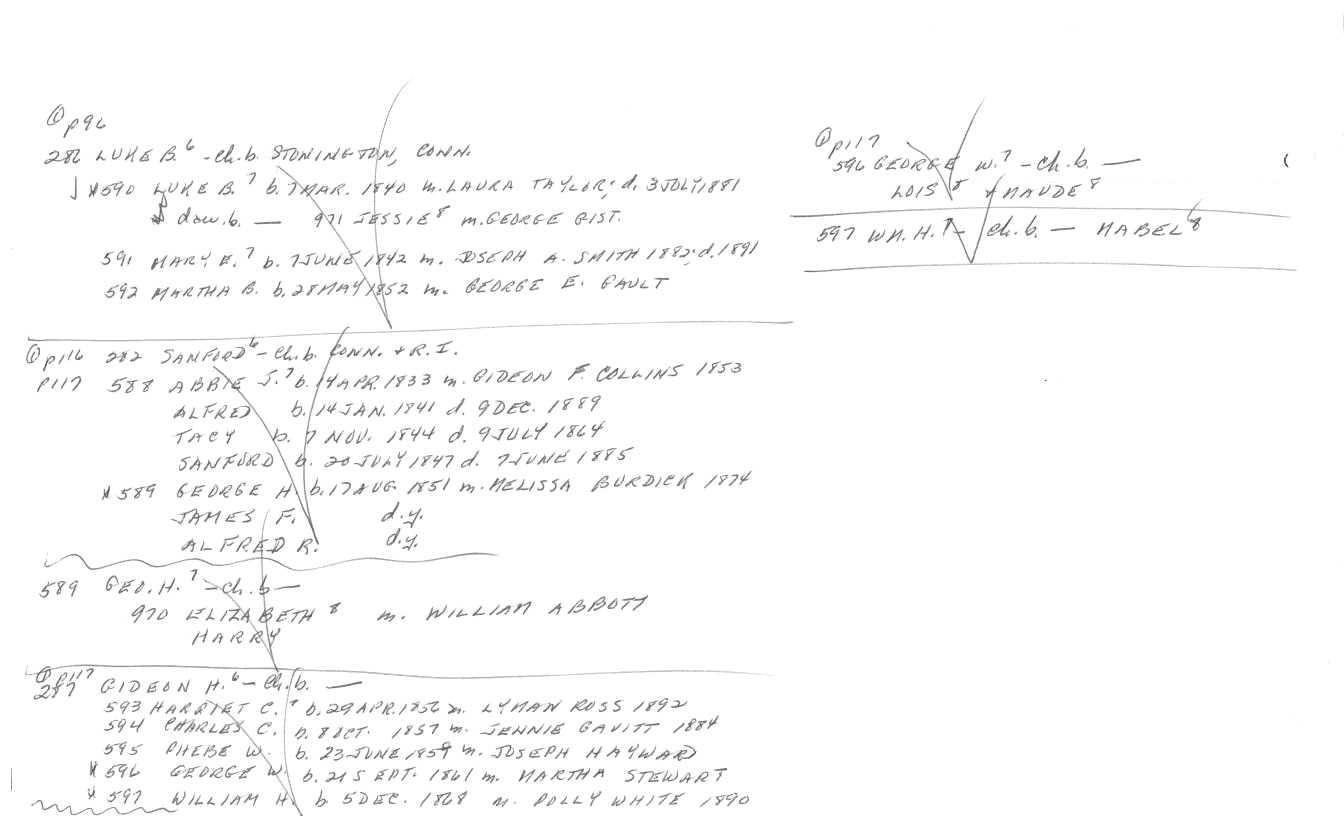 ① p96
286 LUKE B.⁶ - ch. b. STONINGTON, CONN.
*590 LUKE B.⁷ b. 7 MAR. 1840 m. LAURA TAYLOR; d. 3 JULY 1881
dau. b. — 971 JESSIE⁸ m. GEORGE GIST.
591 MARY E.⁷ b. 7 JUNE 1842 m. JOSEPH A. SMITH 1882; d. 1891
592 MARTHA B. b. 28 MAY 1852 m. GEORGE E. GAULT
① p116 282 SANFORD⁶ - ch. b. CONN. + R.I.
P117 588 ABBIE J.⁷ b. 14 APR. 1833 m. GIDEON F. COLLINS 1853
ALFRED b. 14 JAN. 1841 d. 9 DEC. 1889
TACY b. 7 NOV. 1844 d. 9 JULY 1864
SANFORD b. 20 JULY 1847 d. 7 JUNE 1885
*589 GEORGE H. b. 17 AUG 1851 m. MELISSA BURDICK 1874
JAMES F. d.y.
ALFRED R. d.y.
589 GEO. H.⁷ - ch. b —
970 ELIZABETH⁸ m. WILLIAM ABBOTT
HARRY
① p117
287 GIDEON H.⁶ - ch. b. —
593 HARRIET C.⁷ b. 29 APR. 1856 m. LYMAN ROSS 1892
594 CHARLES C. b. 8 OCT. 1857 m. JENNIE GAVITT 1884
595 PHEBE W. b. 23 JUNE 1859 m. JOSEPH HAYWARD
*596 GEORGE W. b. 21 SEPT. 1861 m. MARTHA STEWART
*597 WILLIAM H. b 5 DEC. 1868 m. POLLY WHITE 1890
① p117
596 GEORGE W.⁷ - ch. b. —
LOIS⁸ + MAUDE⁸
597 WM. H.⁷ - ch. b. — MABEL⁸